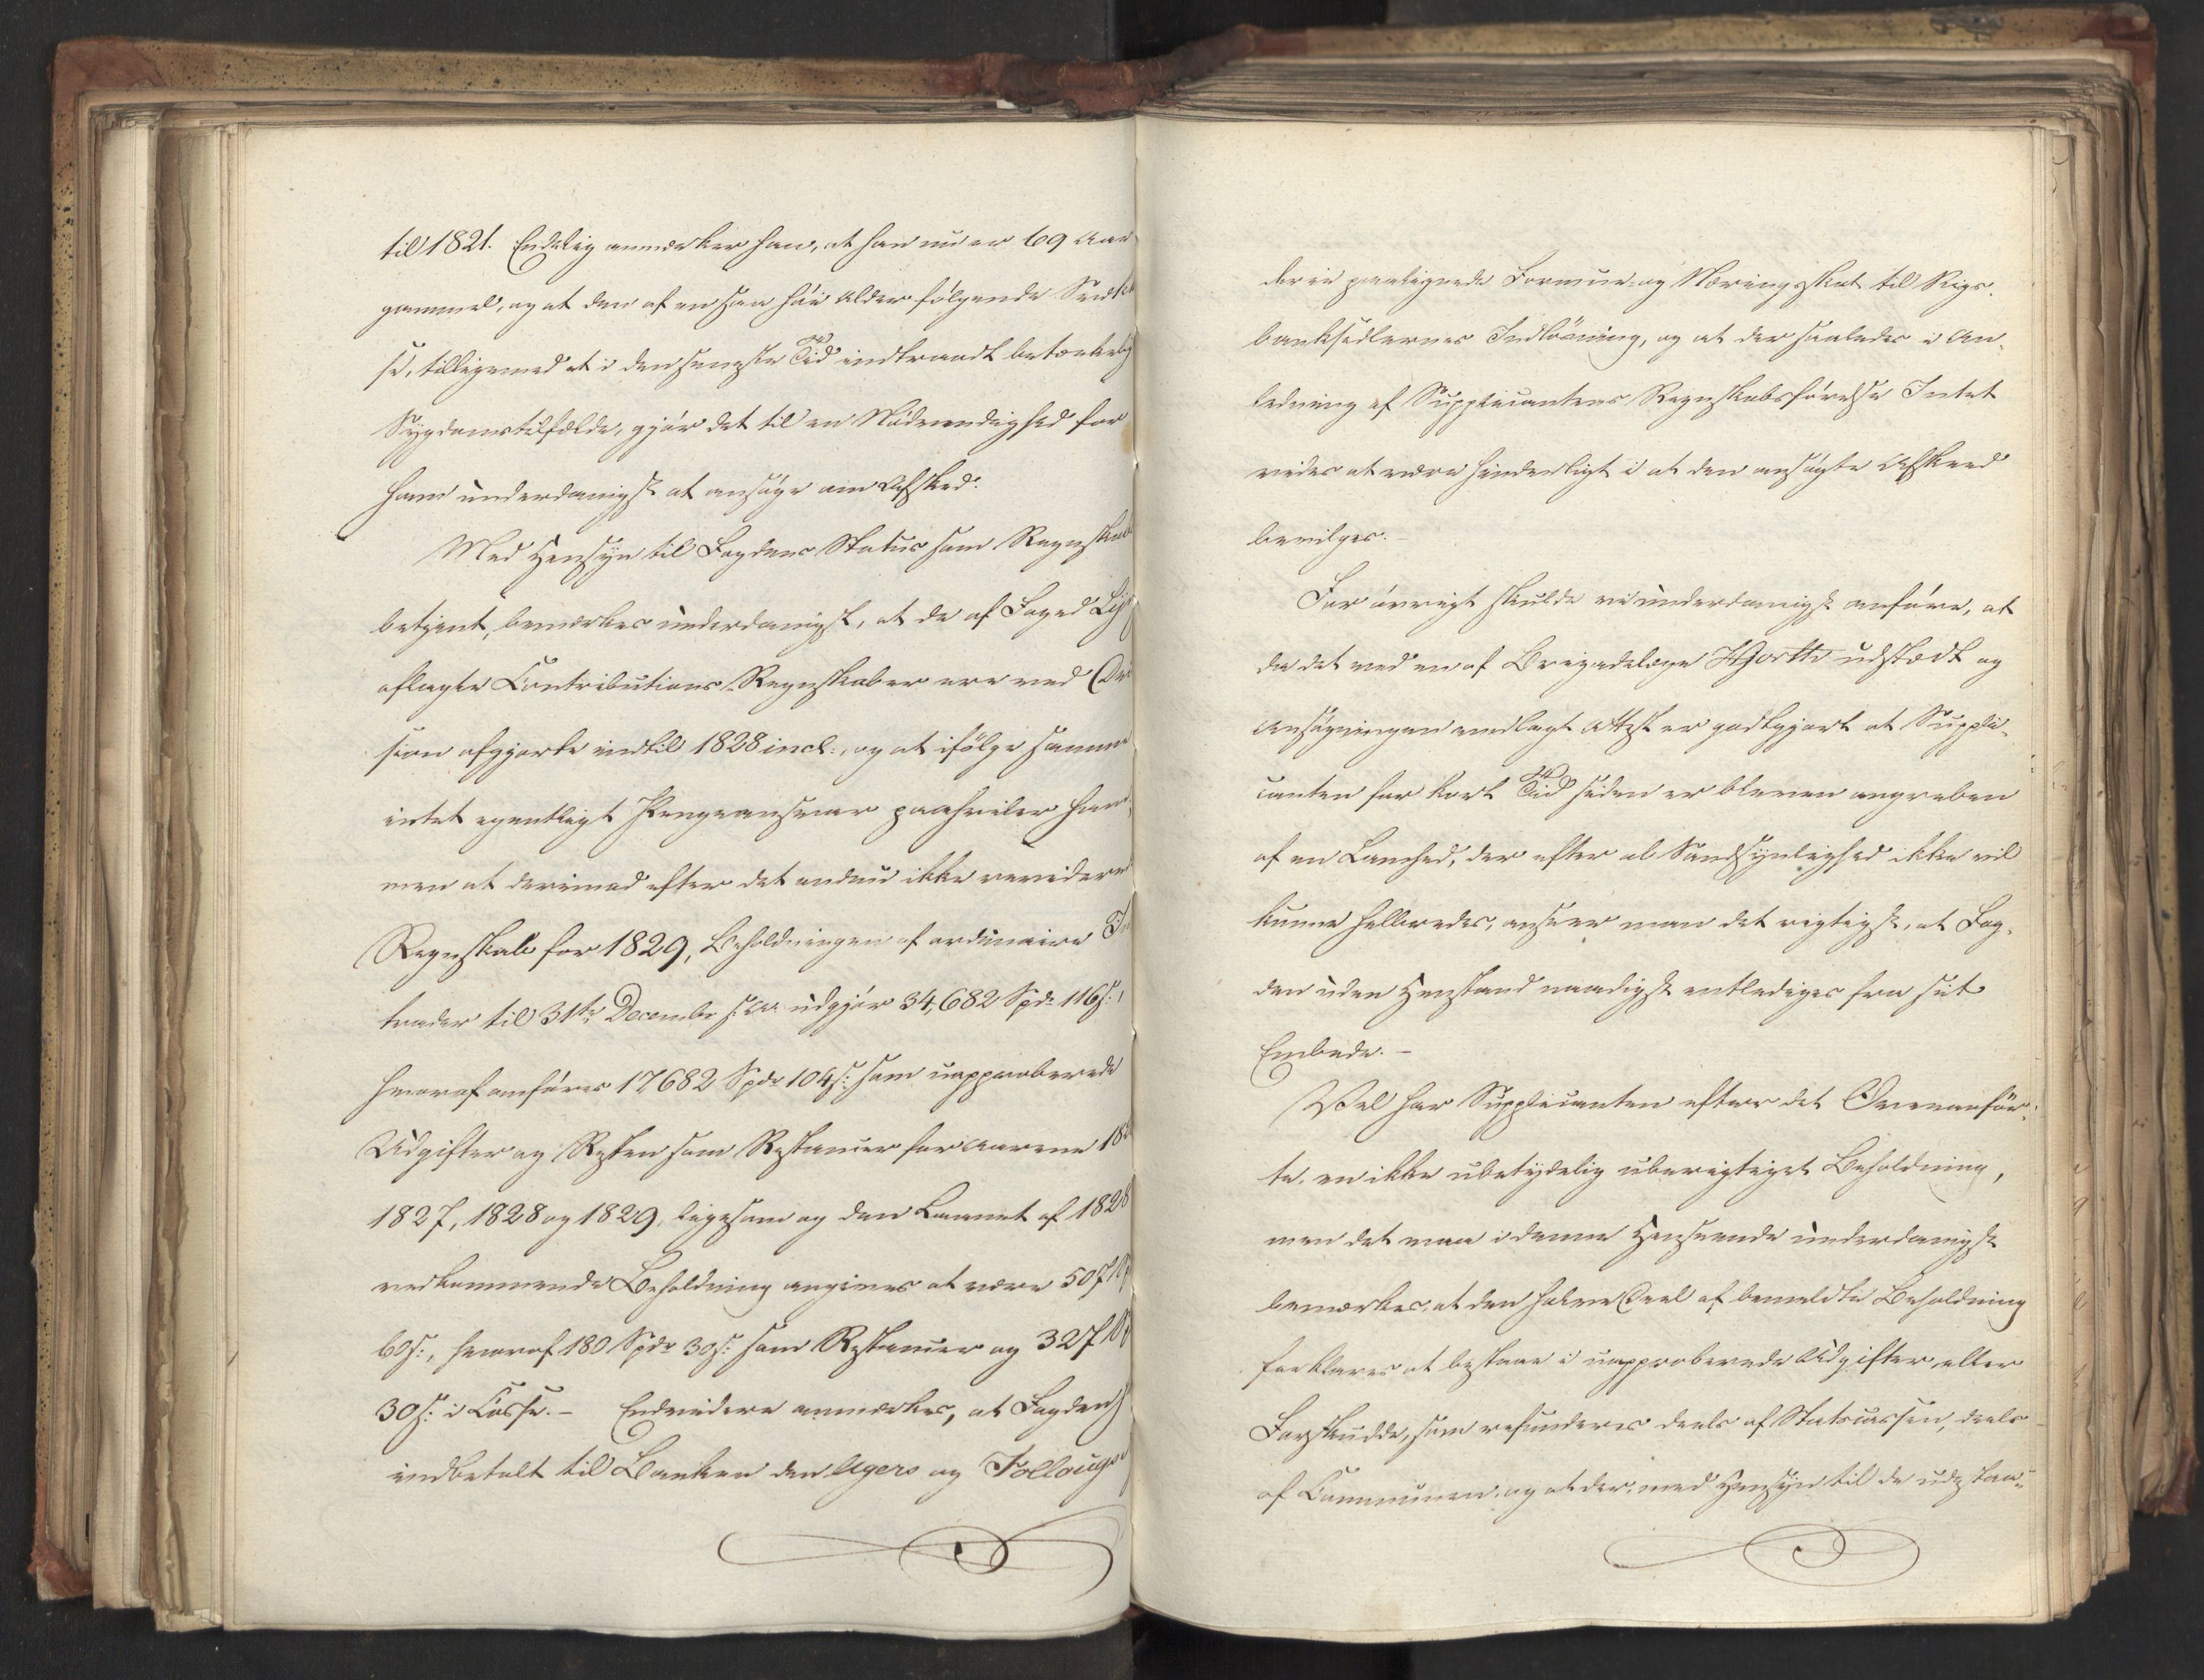 til 1821. Endelig anmærker han, at han nu er 69 Aar
gammel, og at den af en saa høi Alder følgende Svækk
se, tilligemed et i den seneste Tid indtraadt betænkelig
Sygdomstilfælde, gjør det til en Nødvendighed for
ham underdanigst at ansøge om Afsked.
Med Hensyn til Fogdens Status som Regnskabs
betjent, bemærkes underdanigst, at de af Foged
aflagte Contributions-Regnskaber ere ved De
sion afgjorte indtil 1828 incl:, og at ifølge samme
intet egentligt Pengeansvar paahviler ham,
men at derimod efter det endnu ikke reviderede
Regnskab for 1829, Beholdningen af ordinaire In
trader til 31te December s. A. udgjør 34,682 Spd. 116 s:,
hvoraf anføres 17682 Spdr 104 s: som uapproberede
Udgifter og Resten som Restancer for Aarene 18
1827, 1828 og 1829, ligesom og den Laanet af 1828
vedkommende Beholdning angives at være 507
60 s:, hvoraf 180 Spdr 30 s: som Restancer og 327
30 s: i Casse. – Endvidere anmærkes, at Fogden
indbetalt til Banken den Agers og Follougs
derie paalignede Formue- og Næringsskat til Rigs-
banksedlernes Indløsning, og at der saaledes i An-
ledning af Supplicantens Regnskabsførelse Intet
vides at være hinderligt i at den ansøgte Afskeed
bevilges. –
For øvrigt skulde vi underdanigst anføre, at
da det ved en af Brigadelæge Hjorth udstædt og
Ansøgningen vedlagt Attest er godtgjort at Suppli-
canten for kort Tid siden er bleven angreben
af en Lamhed, der efter al Sandsynlighed ikke vil
kunne helbredes, anseer man det rigtigst, at Fog-
den uden Henstand naadigst entlediges fra sit
Embede. –
Vel har Supplicanten efter det Ovenanfør-
te, en ikke ubetydelig uberigtiget Beholdning,
men det maa i denne Henseende underdanigst
bemærkes, at den halve Deel af bemeldte Beholdning
forklares at bestaae i uapproberede Udgifter eller
Forskudde, som refunderes deels af Statscassen, deels
af Communen, og at der, med Hensyn til de udestaa-